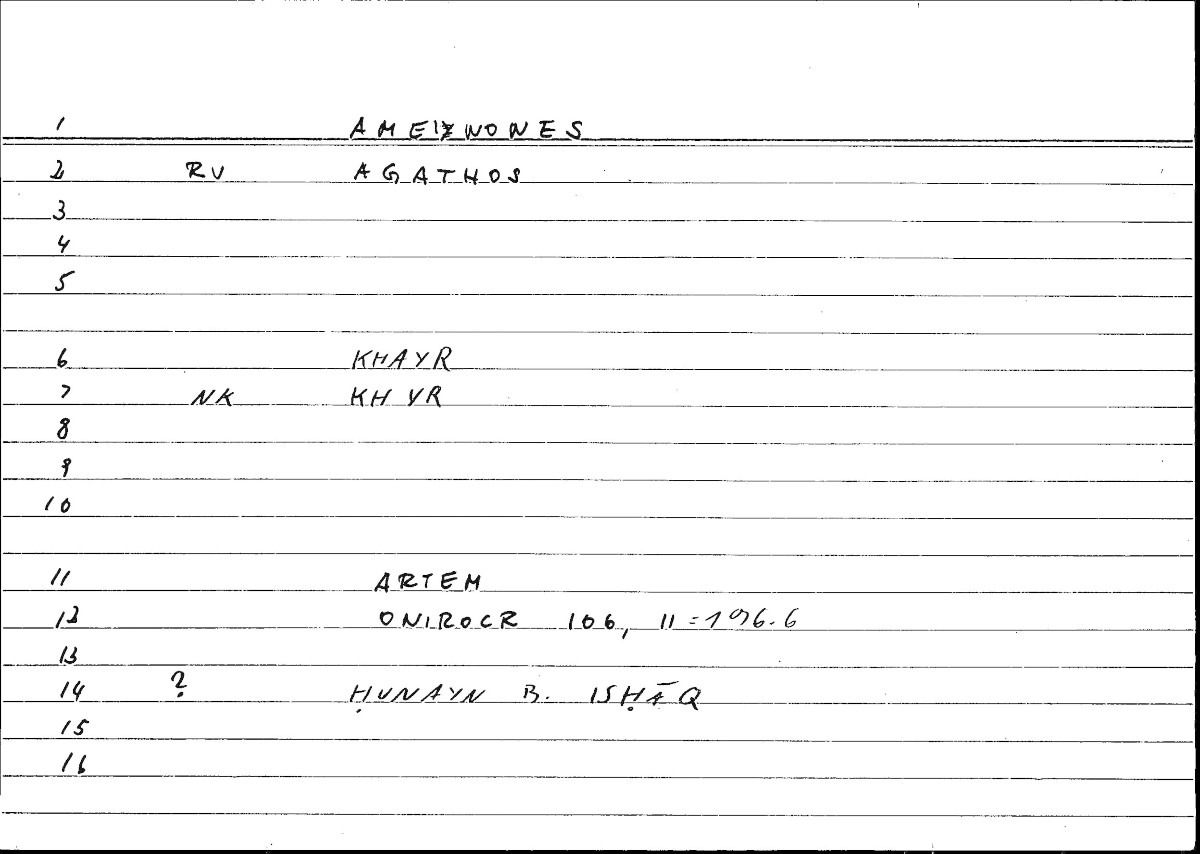 1 AMEINONES
2 RV AGATHOS
3
4
5
6 KHAYR
7 NK KH YR
8
9
10
11 ARTEM
12 ONIROCR 106, 11=196.6
13
14 ? ḤUNAYN B. ISḤĀQ
15
16